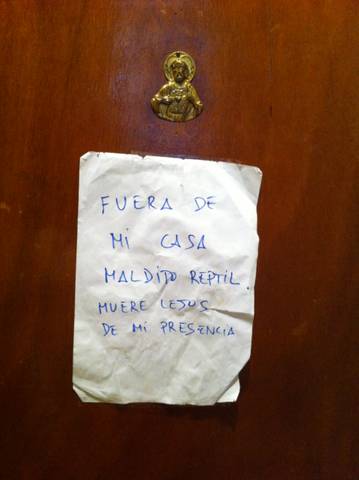 FUERA DE
MI CASA
MALDITO REPTIL
MUERE LEJOS
DE MI PRESENCIA